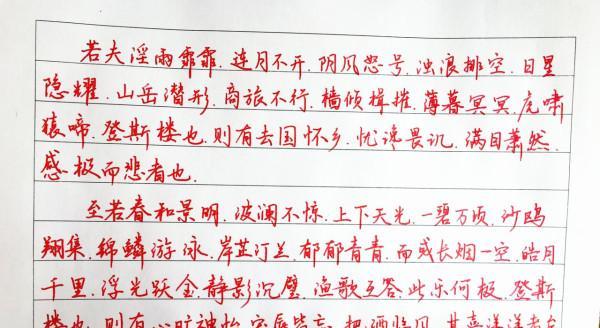 若夫淫雨霏霏.连月不开.阴风怒号.浊浪排空.日星
隐耀.山岳潜形.商旅不行.樯倾楫摧.薄暮冥冥.虎啸
猿啼.登斯楼也.则有去国怀乡.忧谗畏讥.满目萧然.
感极而悲者也.
至若春和景明.波澜不惊.上下天光.一碧万顷.沙鸥
翔集.锦鳞游泳.岸芷汀兰.郁郁青青.而或长烟一空.皓月
千里.浮光跃金.静影沉璧.渔歌互答.此乐何极.登斯
楼也.则有心旷神怡.宠辱皆忘.把酒临风.其喜洋洋者